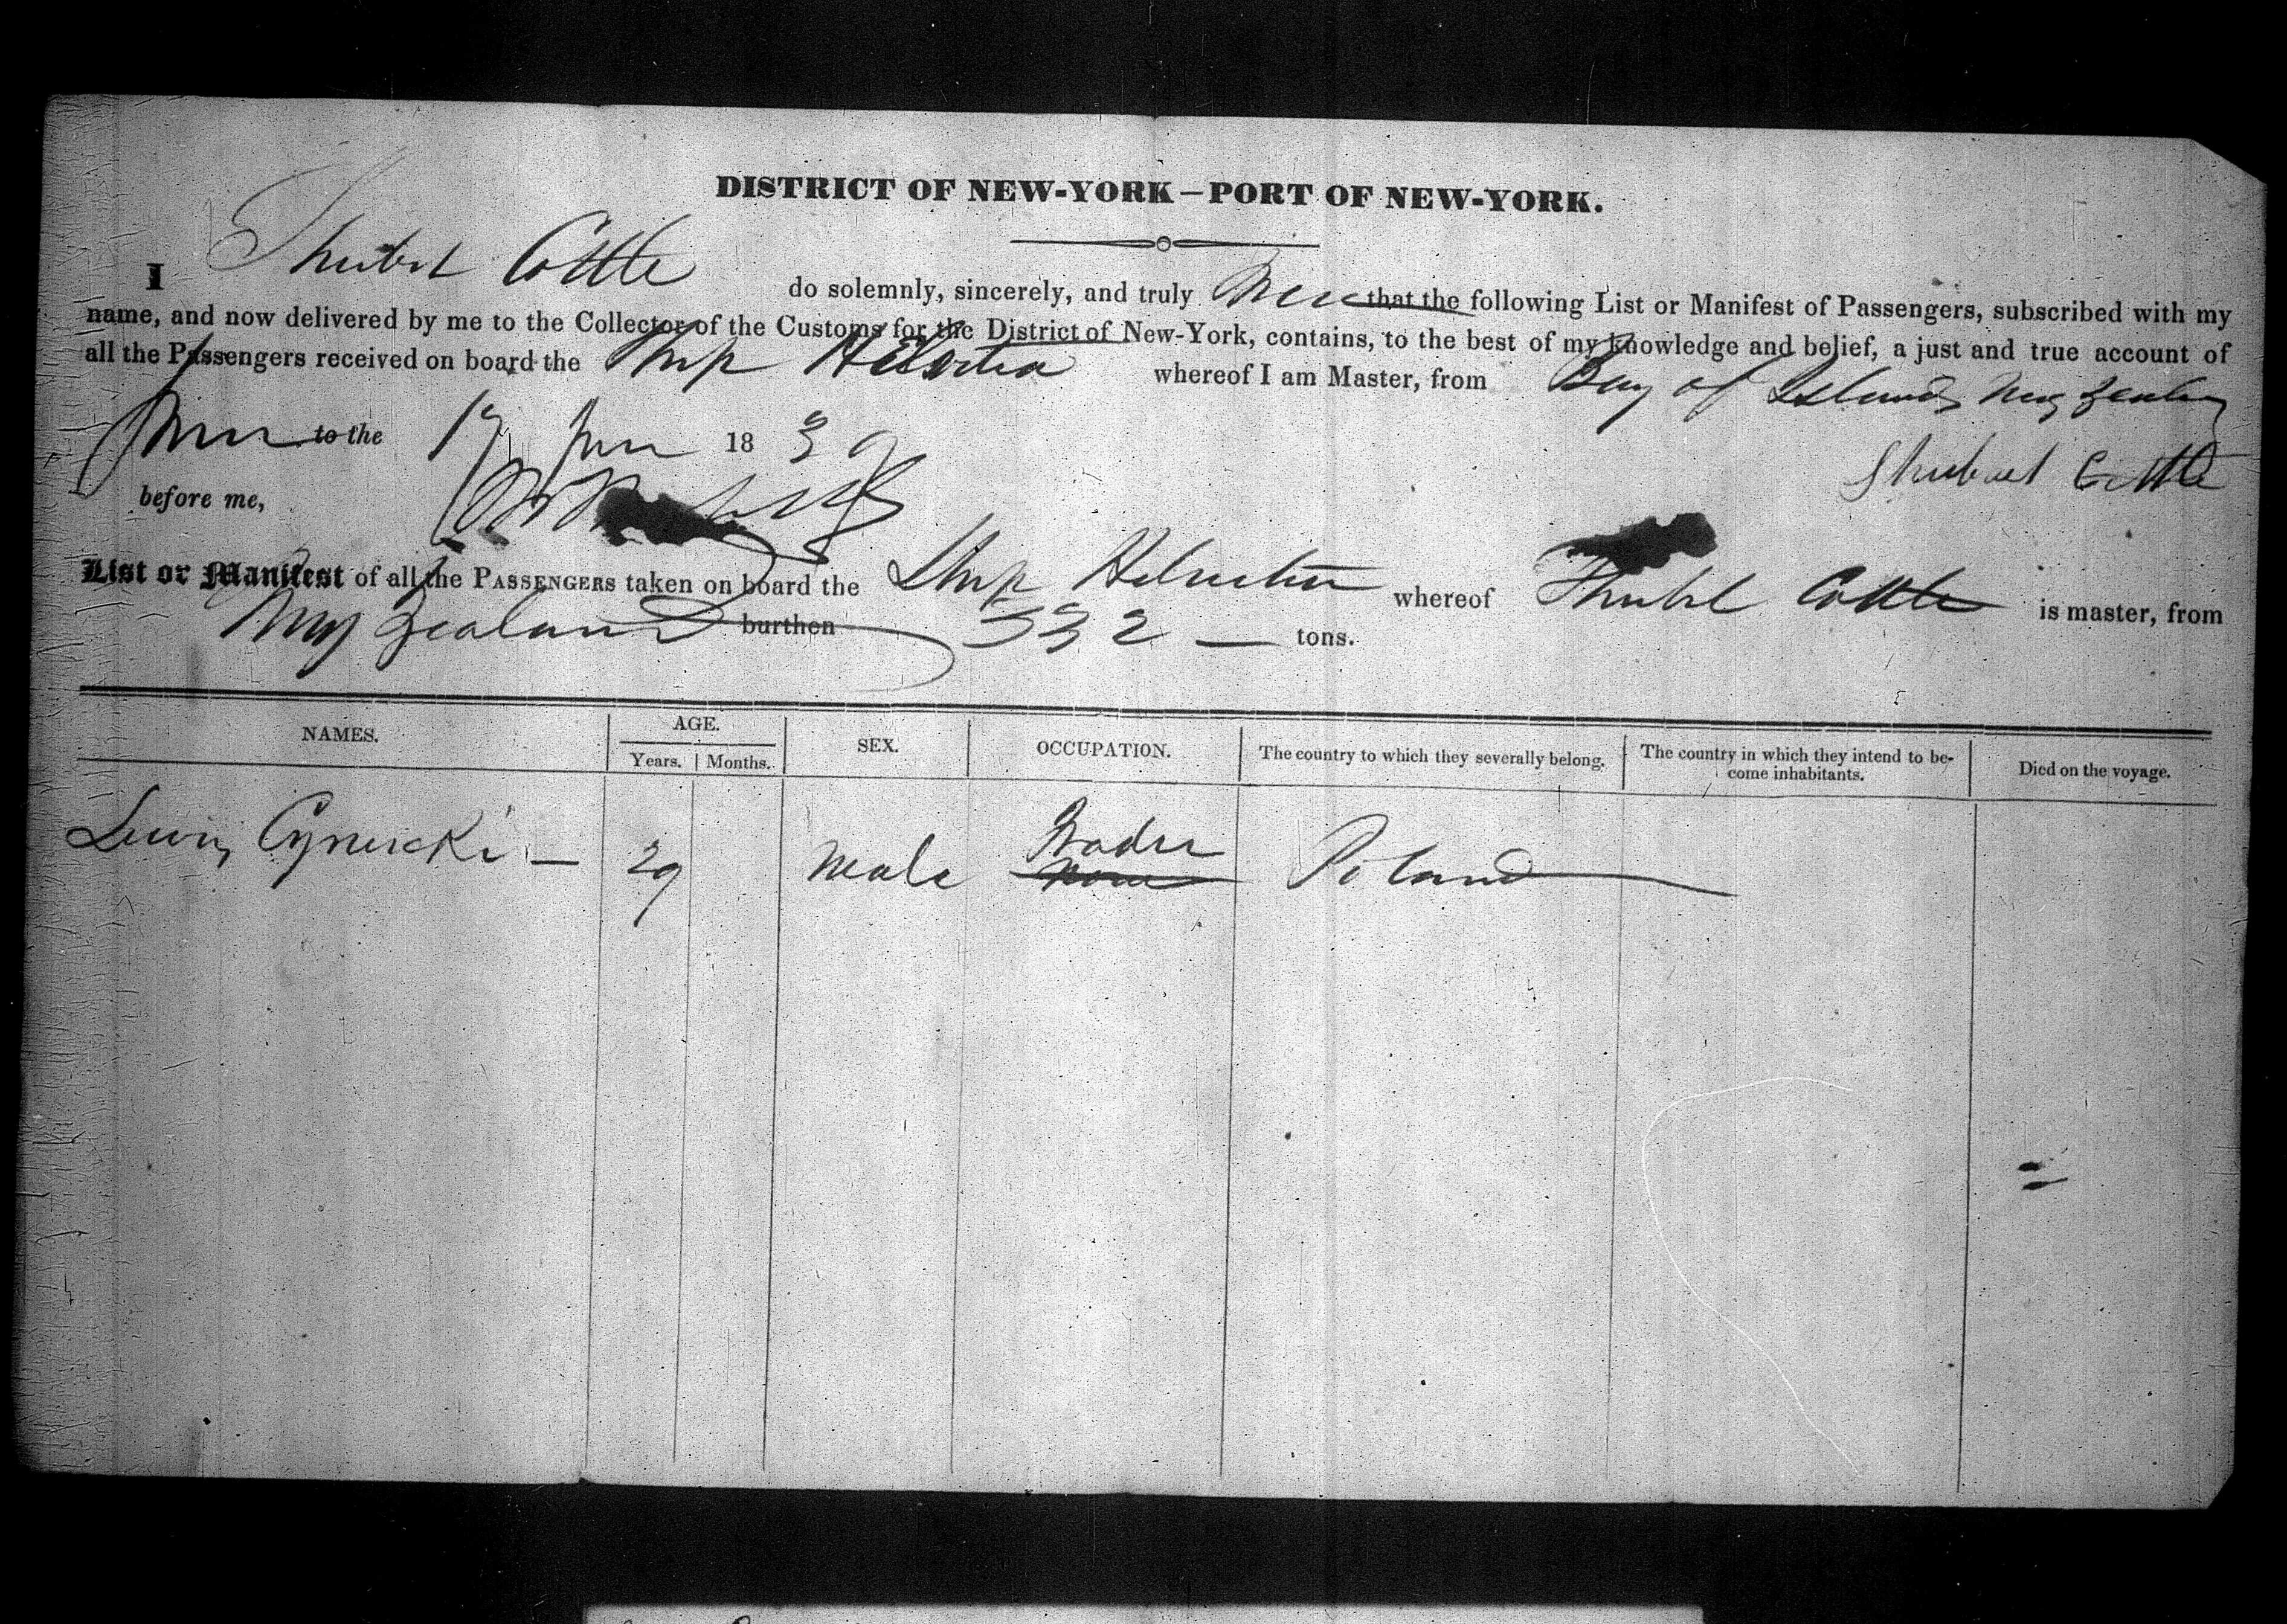 DISTRICT OF NEW-YORK—PORT OF NEW-YORK.
I Shubl Cottle do solemnly, sincerely, and truly that the following List or Manifest of Passengers, subscribed with my
name, and now delivered by me to the Collector of the Customs for the District of New-York, contains, to the best of my knowledge and belief, a just and true account of
all the Passengers received on board the Ship Helvetia whereof I am Master, from Bay of Islands New Zealand
to the 17 June 1839
Shubael Cottle
before me,
List or Manifest of all the PASSENGERS taken on board the Ship Helvetia whereof Shubl Cottle is master, from
New Zealand burthen 332 — tons.
NAMES. AGE. SEX. OCCUPATION. The country to which they severally belong. The country in which they intend to be-
come inhabitants. Died on the voyage.
Years. Months.
Lewis — 29 Male Trader Poland